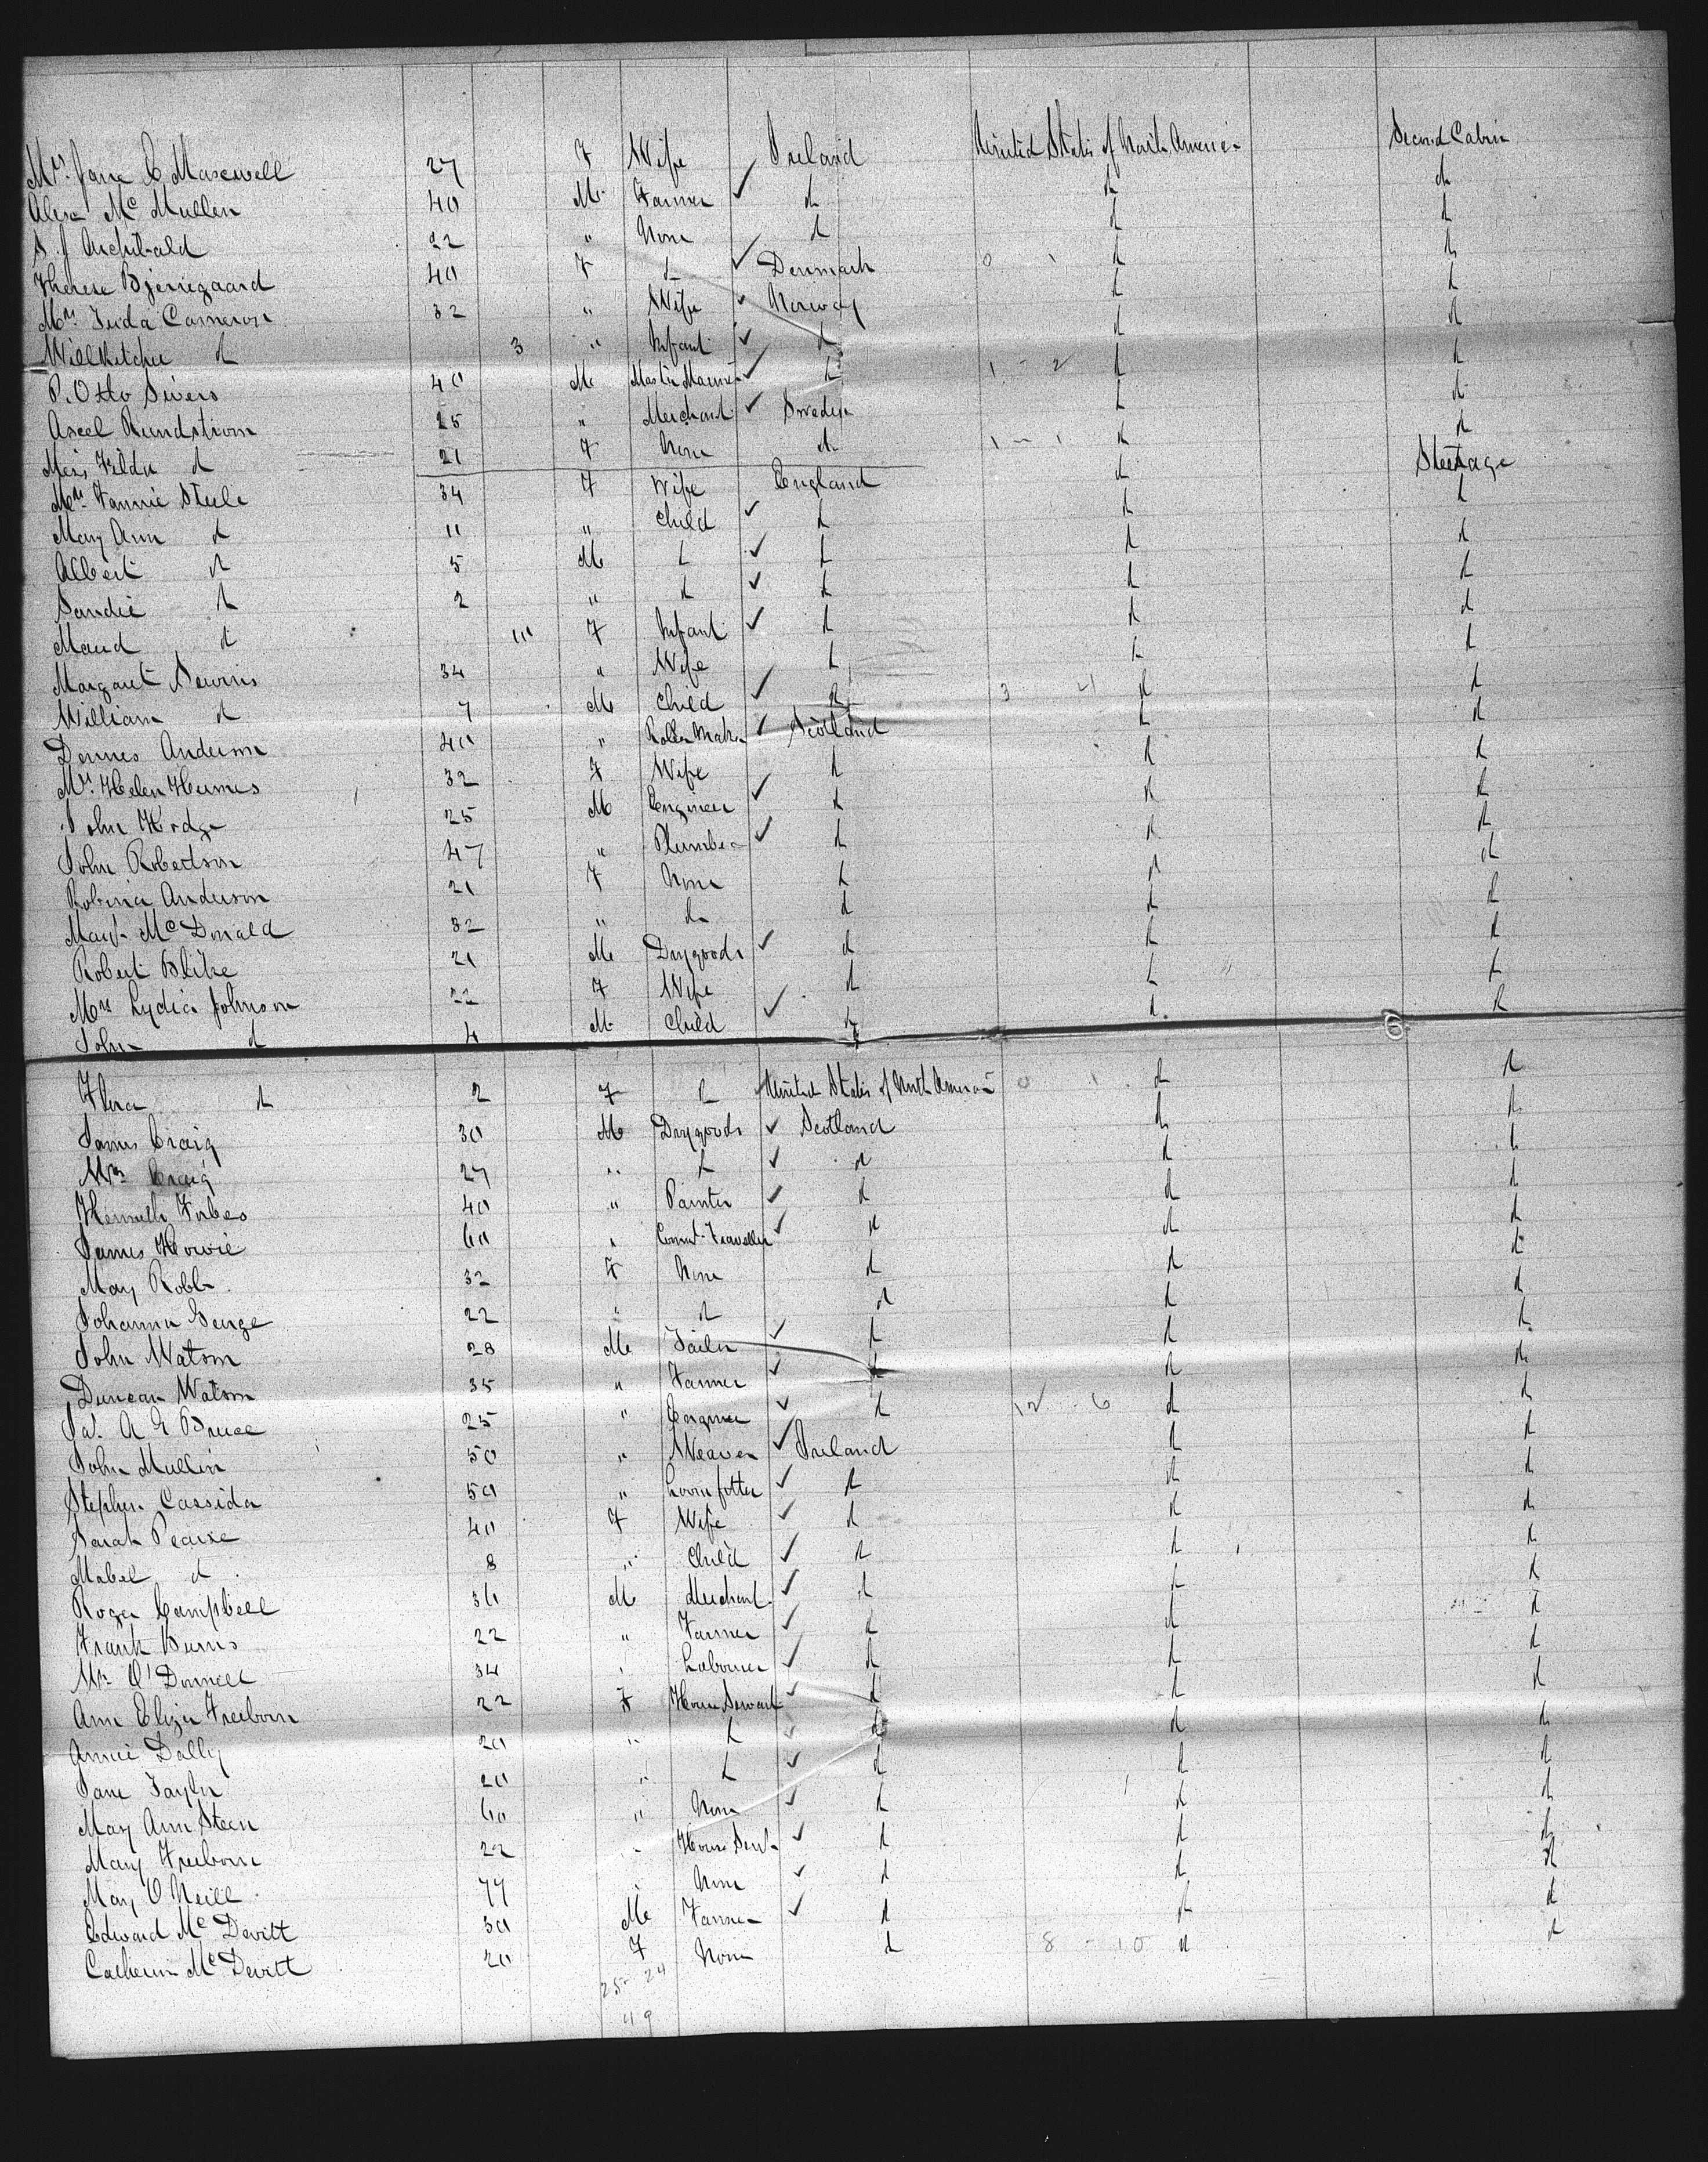 Mrs. Jane C Maxwell 27 F Wife Ireland United States of North America Second Cabin
Alexr Mc Mullen 40 M Farmer ✓ do do do
S. J Archibald 22 " None do do do
Therese Bjerregaard 40 F do ✓ Denmark 0 1 do do
Mrs. Cameron 32 " Wife ✓ Norway do do
do 3 " Infant ✓ do do do
P. Otto Sivers 40 M Master Mariner ✓ do 1 - 2 do do
Axel Rundstrom 25 " Merchant ✓ Sweden do do
Miss Hilda do 21 F None do 1 - 1 do do
Mrs. Fannie Steele 34 F Wife England do Steerage
Mary Ann do 11 " Child ✓ do do do
Albert do 5 M do ✓ do do do
Sandie do 2 " do ✓ do do do
Maud do 10 F Infant ✓ do do do
Margaret 34 " Wife do do do
William do 7 M Child ✓ do 3 4 do do
Anderson 40 " Roller Maker ✓ Scotland do do
Mrs. Helen 32 F Wife do do do
John Hodge 25 M Engineer ✓ do do do
John Robertson 47 " Plumber ✓ do do do
Robina Anderson 21 F None do do do
Mary Mc Donald 32 " do do do do
Robert 21 M Drygoods ✓ do do do
Mrs Lydia Johnson 22 F Wife do do do
John do 4 M Child ✓ do do do
6
Flora do 2 F do United States of North America 0 1 do do
James Craig 30 M Drygoods ✓ Scotland do do
Wm Craig 27 " do ✓ do do do
Kenneth Forbes 40 " Painter ✓ do do do
James Howie 60 " Comml. Traveller ✓ do do do
May Robb 32 F None do do do
Johanna George 22 " do do do do
John Watson 28 M Tailor ✓ do do do
Duncan Watson 35 " Farmer ✓ do do do
Ja. A G Bruce 25 " Engineer ✓ do 12 - 6 do do
John Mullin 50 " Weaver ✓ Ireland do do
Stephen Cassida 50 " ✓ do do do
Sarah Pearce 40 F Wife ✓ do do do
Mabel do 8 " Child ✓ do do do
Roger Campbell 30 M Merchant ✓ do do do
Frank Burns 22 " Farmer ✓ do do do
Wm O'Donnell 34 " Labourer ✓ do do do
Ann Eliza Freeborn 22 F House Servant ✓ do do do
Annie Dolly 20 " do ✓ do do do
Jane Taylor 20 " do ✓ do do do
Mary Ann Steen 60 " None ✓ do do do
Mary Freeborn 22 " House Servt ✓ do do do
Mary O Neill 77 " None ✓ do do do
Edward Mc Devitt 30 M Farmer ✓ do do do
Catherin Mc Devitt 20 F None do 8 - 10 do do
25 - 24
49